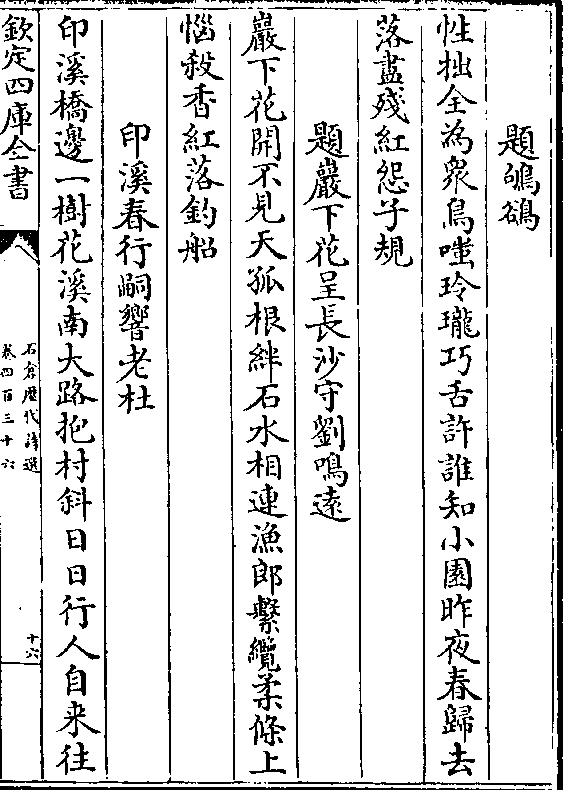 題鴝鵒
性拙全為衆鳥嗤玲瓏巧舌許誰知小園昨夜春歸去
落盡殘紅怨子規
題巖下花呈長沙守劉鳴遠
巖下花開不見天孤根絆石水相連漁郎繫纜柔條上
惱殺香紅落釣船
印溪春行嗣響老杜
印溪橋邊一樹花溪南大路抱村斜日日行人自来往
欽定四庫全書
石倉歷代詩選
卷四百三十六
十六